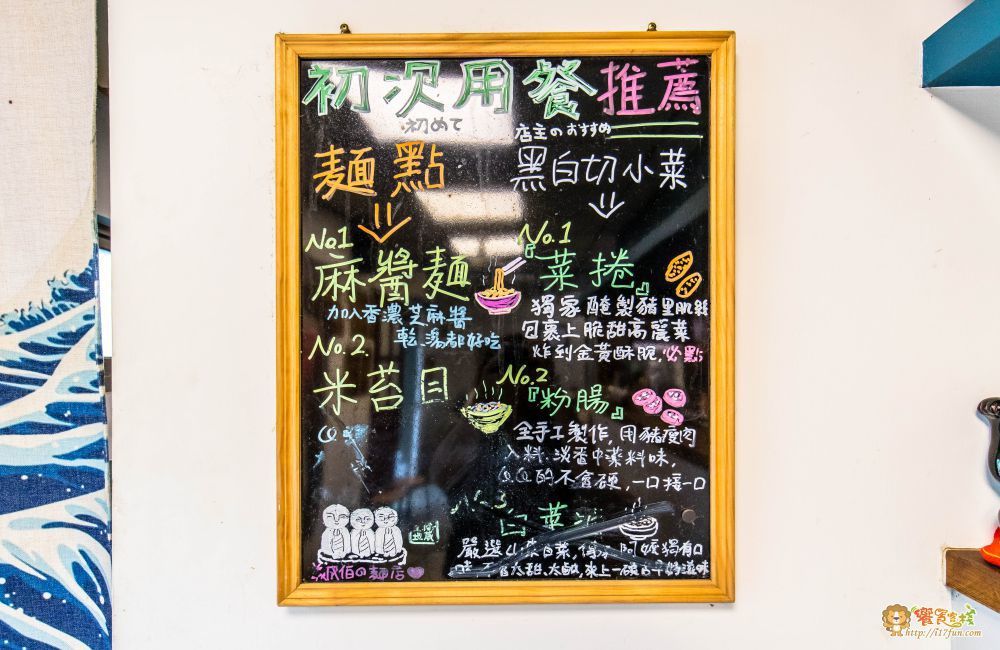 初次用餐推薦
初めて
店主のおすすめ
麵點
No.1
麻醬麵
加入香濃芝麻醬
乾、湯都好吃
No.2.
米苔目
QQ
黑白切小菜
No.1
『菜捲』
獨家醃製豬里肌絲
包裹上脆甜高麗菜
炸到金黃酥脆,必點
No.2
『粉腸』
全手工製作,用豬瘦肉
入料.淡香中藥料味,
QQ的不會硬,一口接一口
No.3
白菜
嚴選山東白菜,傳承阿嬤獨有口
太甜、太鹹,來上一碗
好滋味
の麵店
饗賞客棧
http://i17fun.com